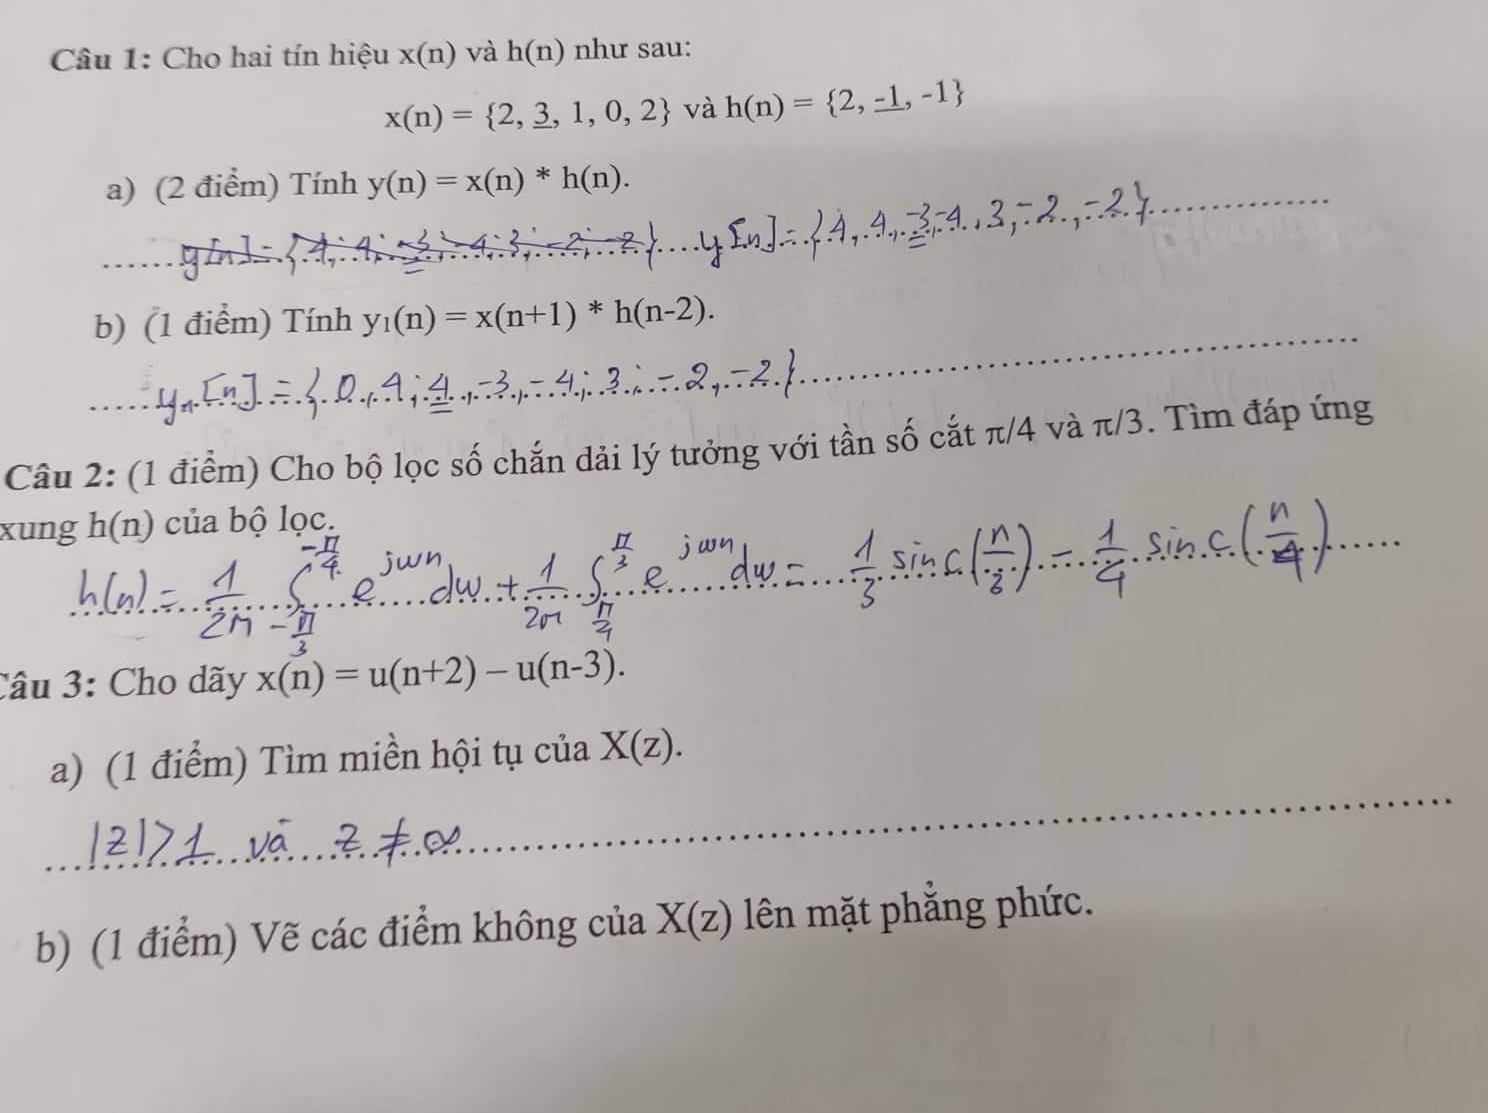 Câu 1: Cho hai tín hiệu x(n) và h(n) như sau:
x(n) = {2, 3, 1, 0, 2} và h(n) = {2, -1, -1}
a) (2 điểm) Tính y(n) = x(n) * h(n).
y[n] = {4, 4, -3, -4, 3, -2, -2} y[n] = {4, 4, -3, -4, 3, -2, -2}
b) (1 điểm) Tính y₁(n) = x(n+1) * h(n-2).
y₁[n] = {0, 4, 4, -3, -4, 3, -2, -2}
Câu 2: (1 điểm) Cho bộ lọc số chắn dải lý tưởng với tần số cắt π/4 và π/3. Tìm đáp ứng
xung h(n) của bộ lọc.
h(n) = 1/2π ∫_{-π/3}^{-π/4} e^{jωn} dω + 1/2π ∫_{π/4}^{π/3} e^{jωn} dω = 1/3 sinc(n/3) - 1/4 sinc(n/4)
Câu 3: Cho dãy x(n) = u(n+2) – u(n-3).
a) (1 điểm) Tìm miền hội tụ của X(z).
|z| > 1 và z ≠ ∞
b) (1 điểm) Vẽ các điểm không của X(z) lên mặt phẳng phức.